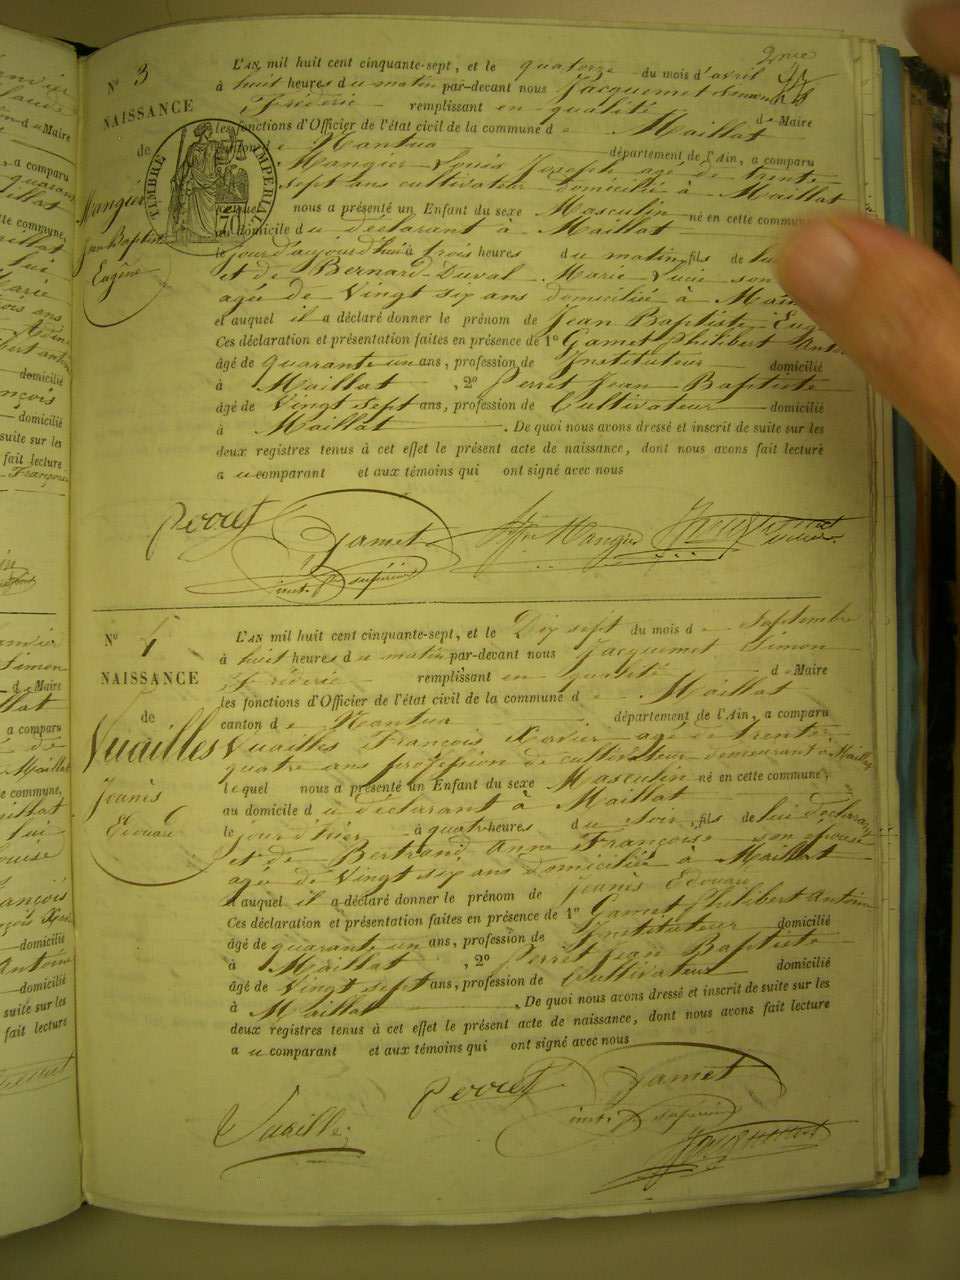 2me
N° 3
NAISSANCE
de
Mangier
Jean Baptiste
Eugène
TIMBRE IMPERIAL
L'AN mil huit cent cinquante-sept, et le quatorze du mois d'avril
à huit heures du matin par-devant nous Jacquemet Simon
Fréderic remplissant en qualité de Maire
les fonctions d'Officier de l'état civil de la commune de Maillat
canton de Nantua département de l'Ain, a comparu
Mangier Louis Joseph agé de trente
sept ans cultivateur domicilié à Maillat
lequel nous a présenté un Enfant du sexe Masculin né en cette commune
au domicile du déclarant à Maillat
le jour d'aujourd'hui à trois heures du matin, fils de
et de Bernard Duval Marie Lucie son
agée de Vingt six ans domiciliée à
et auquel il a déclaré donner le prénom de Jean Baptiste
Ces déclaration et présentation faites en présence de 1° Gamet Philibert
âgé de quarante un ans, profession de Instituteur domicilié
à Maillat, 2° Perret Jean Baptiste
âgé de Vingt sept ans, profession de Cultivateur domicilié
à Maillat. De quoi nous avons dressé et inscrit de suite sur les
deux registres tenus à cet effet le présent acte de naissance, dont nous avons fait lecture
au comparant et aux témoins qui ont signé avec nous
Perret Gamet Mangier Jacquemet
inst. supérieur
N° 4
NAISSANCE
de
Vuailles
Joanès
Edouau
L'AN mil huit cent cinquante-sept, et le Dix sept du mois de Septembre
à huit heures du matin par-devant nous Jacquemet Simon
Fréderic remplissant en qualité de Maire
les fonctions d'Officier de l'état civil de la commune de Maillat
canton de Nantua département de l'Ain, a comparu
Vuailles François Xavier agé de trente
quatre ans profession de cultivateur demeurant à Maillat
lequel nous a présenté un Enfant du sexe Masculin né en cette commune,
au domicile du déclarant à Maillat
le jour d'hier à quatre heures du Soir, fils de lui déclarant
et de Bertrand, Anne Françoise son épouse
agée de Vingt six ans domiciliée à Maillat
et auquel il a déclaré donner le prénom de Joanès Edouau
Ces déclaration et présentation faites en présence de 1° Gamet Philibert Antoine
âgé de quarante un ans, profession de Instituteur domicilié
à Maillat, 2° Perret Jean Baptiste
âgé de Vingt sept ans, profession de Cultivateur domicilié
à Maillat. De quoi nous avons dressé et inscrit de suite sur les
deux registres tenus à cet effet le présent acte de naissance, dont nous avons fait lecture
au comparant et aux témoins qui ont signé avec nous
Perret Gamet
inst. supérieur
Vuaille Jacquemet